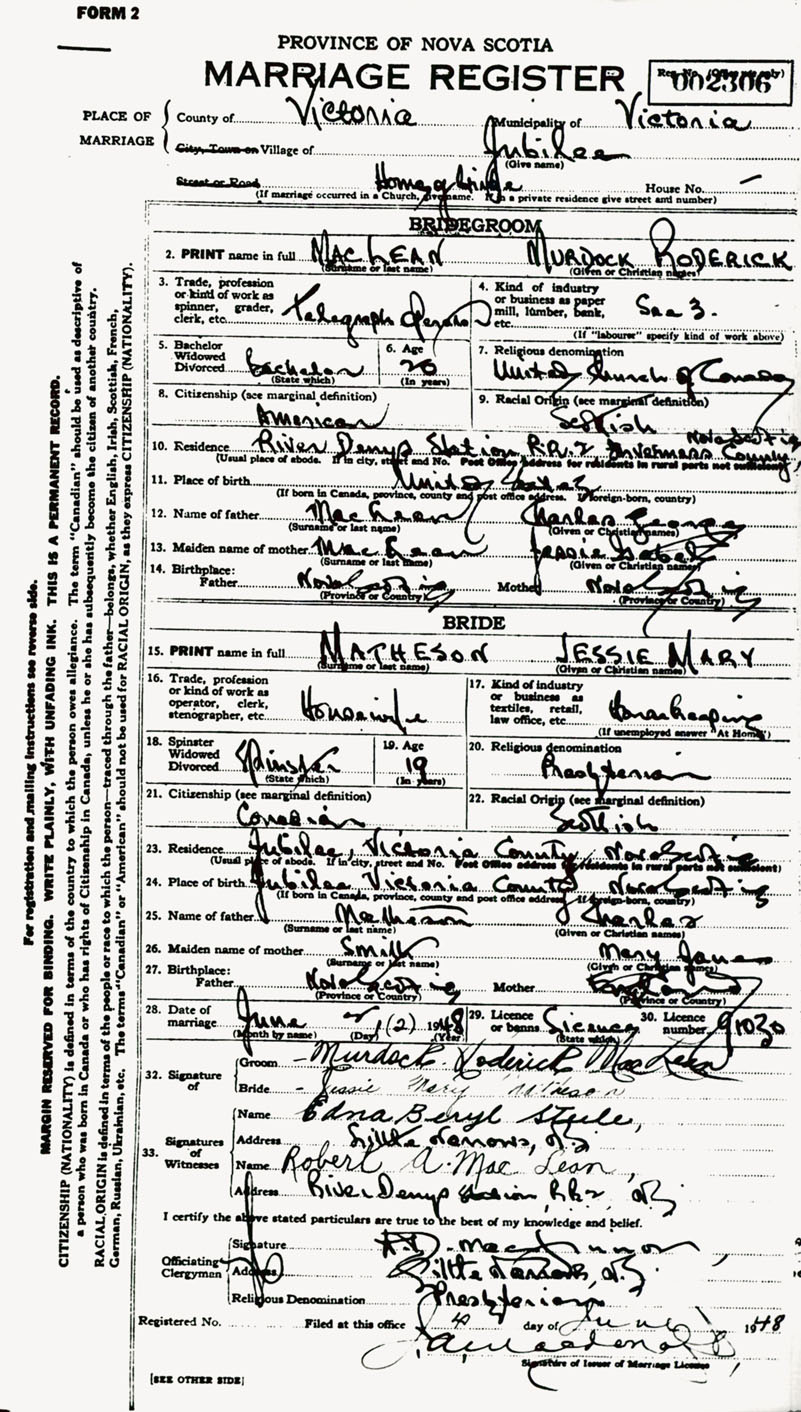 FORM 2
PROVINCE OF NOVA SCOTIA
MARRIAGE REGISTER
Reg. No. (Office use only)
002306
PLACE OF MARRIAGE
County of Victoria Municipality of Victoria
City, Town or Village of Jubilee
(Give name)
Street or Road Home of Bride House No. —
(If marriage occurred in a Church, give name. If in a private residence give street and number)
BRIDEGROOM
2. PRINT name in full MACLEAN MURDOCK RODERICK
(Surname or last name) (Given or Christian names)
3. Trade, profession or kind of work as spinner, grader, clerk, etc. Telegraph Operator
4. Kind of industry or business as paper mill, lumber, bank, etc. See 3.
(If "labourer" specify kind of work above)
5. Bachelor Widowed Divorced Bachelor
(State which)
6. Age 26
(In years)
7. Religious denomination
United Church of Canada
8. Citizenship (see marginal definition)
American
9. Racial Origin (see marginal definition)
Scottish
10. Residence River Denys Station R.R. 2 Inverness County, Nova Scotia
(Usual place of abode. If in city, street and No. Post Office address for residents in rural parts not sufficient)
11. Place of birth United States
(If born in Canada, province, county and post office address. If foreign-born, country)
12. Name of father MacLean Charles George
(Surname or last name) (Given or Christian names)
13. Maiden name of mother MacLean Jessie Isabel
(Surname or last name) (Given or Christian names)
14. Birthplace: Father Nova Scotia Mother Nova Scotia
(Province or Country) (Province or Country)
BRIDE
15. PRINT name in full MATHESON JESSIE MARY
(Surname or last name) (Given or Christian names)
16. Trade, profession or kind of work as operator, clerk, stenographer, etc. Housewife
17. Kind of industry or business as textiles, retail, law office, etc. Housekeeping
(If unemployed answer "At Home")
18. Spinster Widowed Divorced Spinster
(State which)
19. Age 19
(In years)
20. Religious denomination
Presbyterian
21. Citizenship (see marginal definition)
Canadian
22. Racial Origin (see marginal definition)
Scottish
23. Residence Jubilee, Victoria County, Nova Scotia
(Usual place of abode. If in city, street and No. Post Office address for residents in rural parts not sufficient)
24. Place of birth Jubilee, Victoria County, Nova Scotia
(If born in Canada, province, county and post office address. If foreign-born, country)
25. Name of father Matheson Charles
(Surname or last name) (Given or Christian names)
26. Maiden name of mother Smith Mary Jane
(Surname or last name) (Given or Christian names)
27. Birthplace: Father Nova Scotia Mother England
(Province or Country) (Province or Country)
28. Date of marriage June 2, (2) 1948
(Month by name) (Day) (Year)
29. Licence or banns License
(State which)
30. Licence number 91030
32. Signature of
Groom Murdock Roderick MacLean
Bride Jessie Mary Matheson
33. Signatures of Witnesses
Name Edna Beryl Steele,
Address Little Narrows, N.S.
Name Robert A. MacLean,
Address River Denys Station, R.R. 2, N.S.
I certify the above stated particulars are true to the best of my knowledge and belief.
Officiating Clergyman
Signature A.D. MacKinnon,
Address Little Narrows, N.S.
Religious Denomination Presbyterian
Registered No. Filed at this office day of June 1948
J.A. Macdonald
Signature of Issuer of Marriage License
[SEE OTHER SIDE]
For registration and mailing instructions see reverse side.
MARGIN RESERVED FOR BINDING. WRITE PLAINLY, WITH UNFADING INK. THIS IS A PERMANENT RECORD.
CITIZENSHIP (NATIONALITY) is defined in terms of the country to which the person owes allegiance. The term "Canadian" should be used as descriptive of
a person who was born in Canada or who has rights of Citizenship in Canada, unless he or she has subsequently become the citizen of another country.
RACIAL ORIGIN is defined in terms of the people or race to which the person—traced through the father—belongs, whether English, Irish, Scottish, French,
German, Russian, Ukrainian, etc. The terms "Canadian" or "American" should not be used for RACIAL ORIGIN, as they express CITIZENSHIP (NATIONALITY).